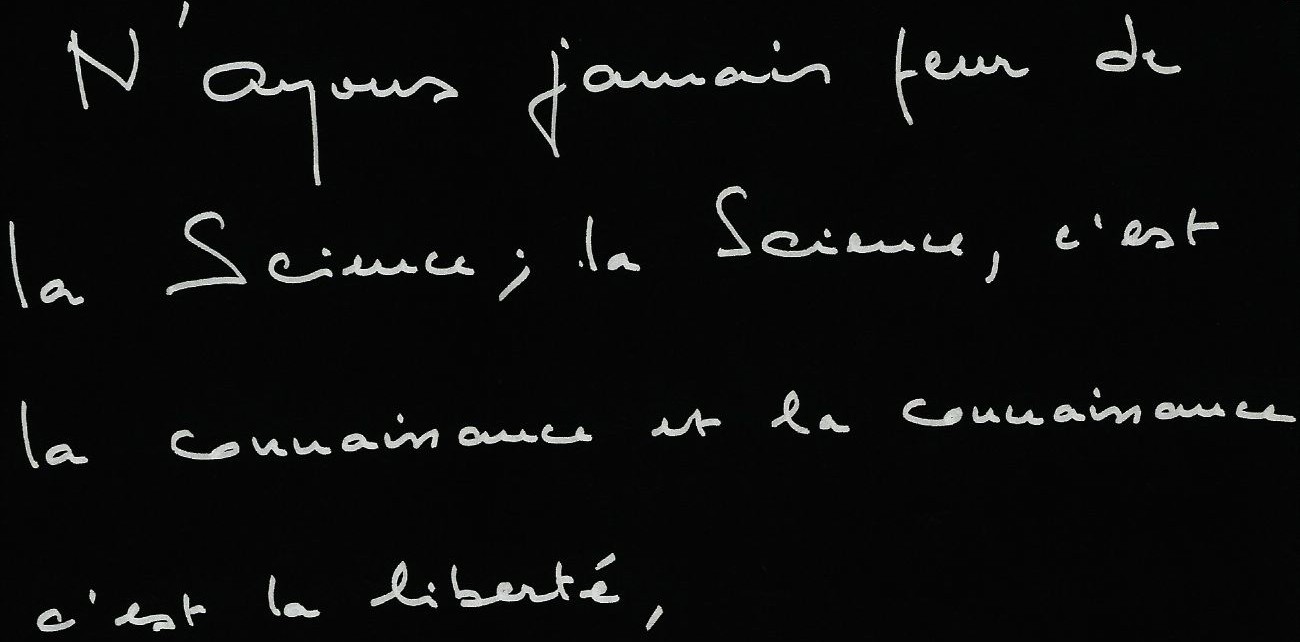 N'ayons jamais peur de
la Science; la Science, c'est
la connaissance et la connaissance
c'est la liberté,